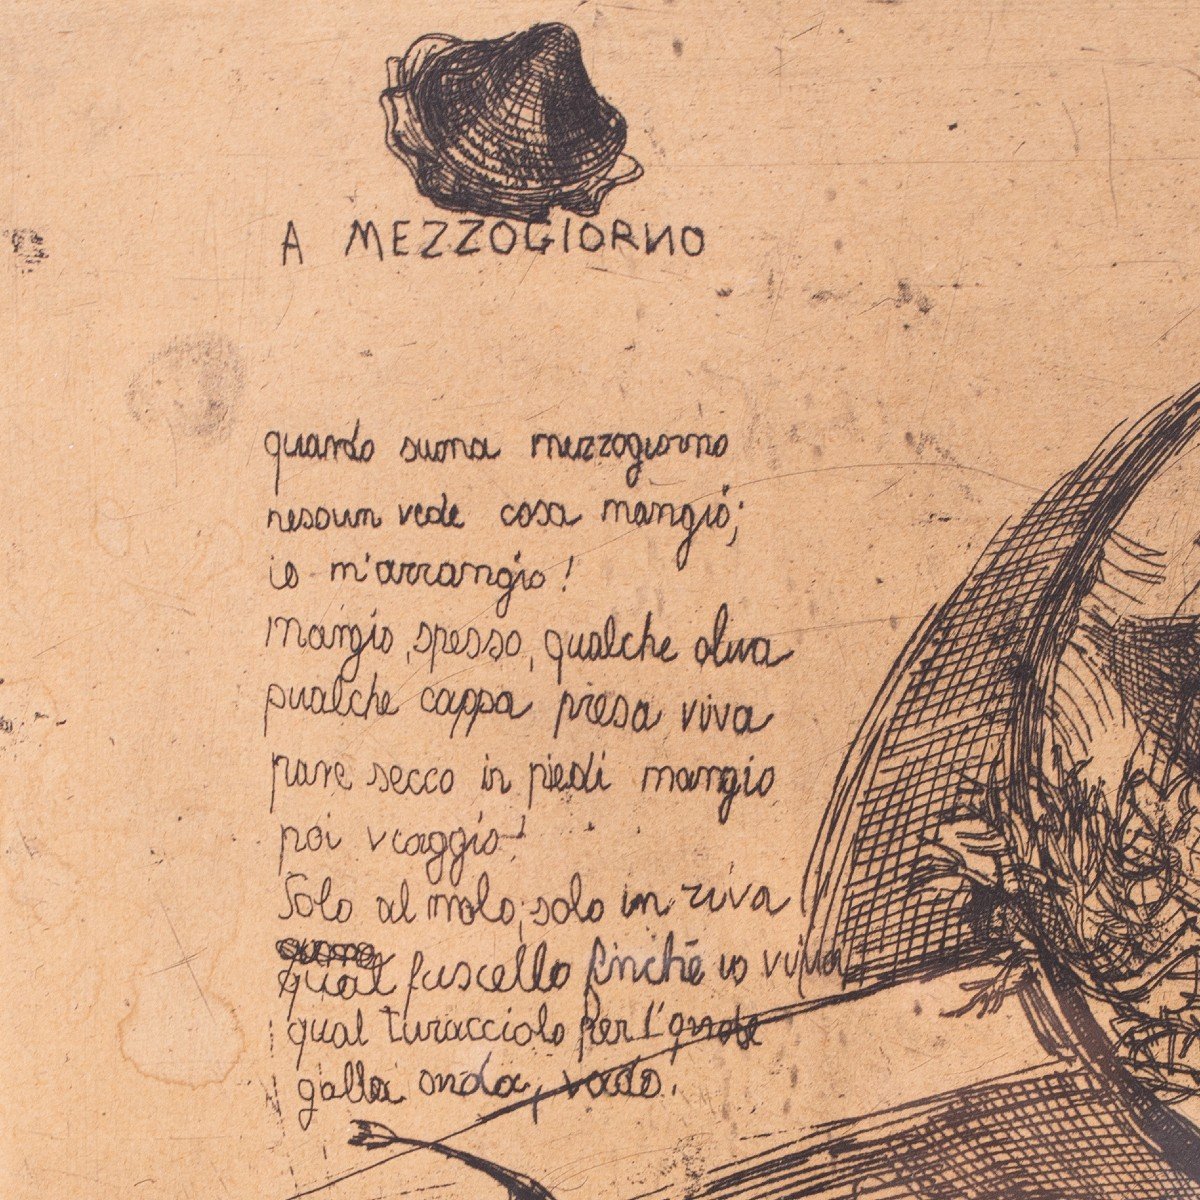 A MEZZOGIORNO
quando suona mezzogiorno
nessun vede cosa mangio;
io m'arrangio!
Mangio, spesso, qualche oliva
qualche cappa presa viva
pane secco in piedi mangio
poi viaggio!
Solo al molo, solo in riva
qual fuscello finchè io viva
qual turacciolo per l'onde
galla onda, vado.